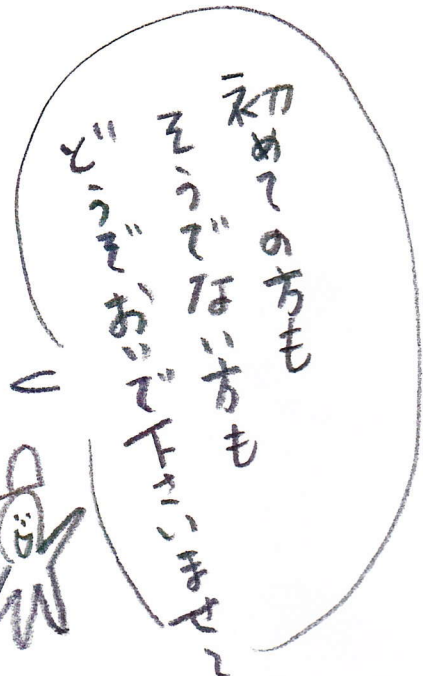 初めての方も
そうでない方も
どうぞおいで下さいませ〜